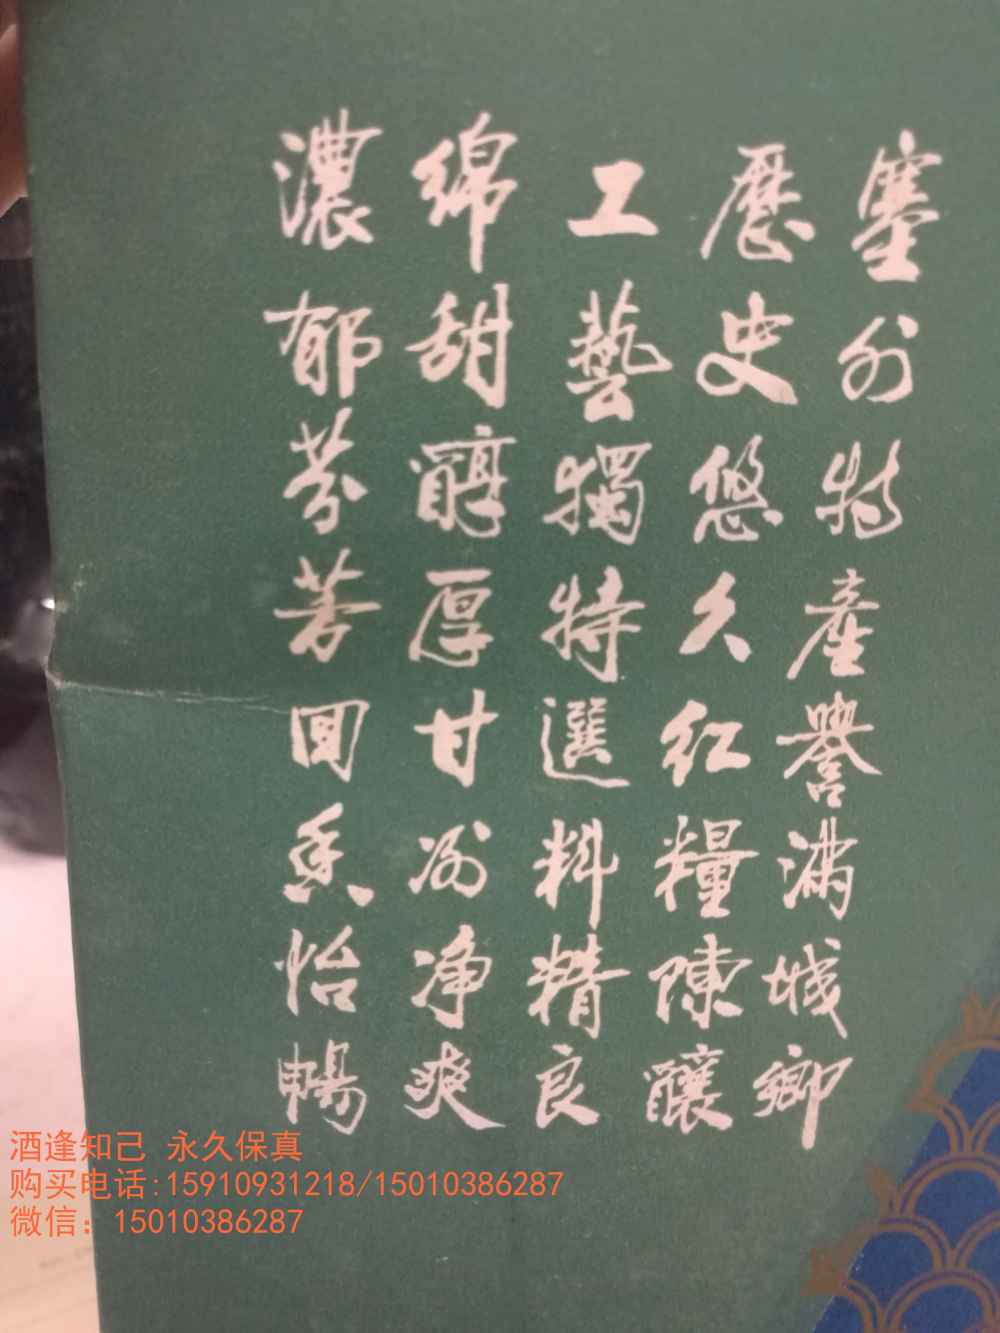 塞外特產譽滿城鄉
歷史悠久紅糧陳釀
工藝獨特選料精良
綿甜醇厚甘冽净爽
濃郁芬芳回香怡暢
酒逢知己 永久保真
购买电话:15910931218/15010386287
微信：15010386287